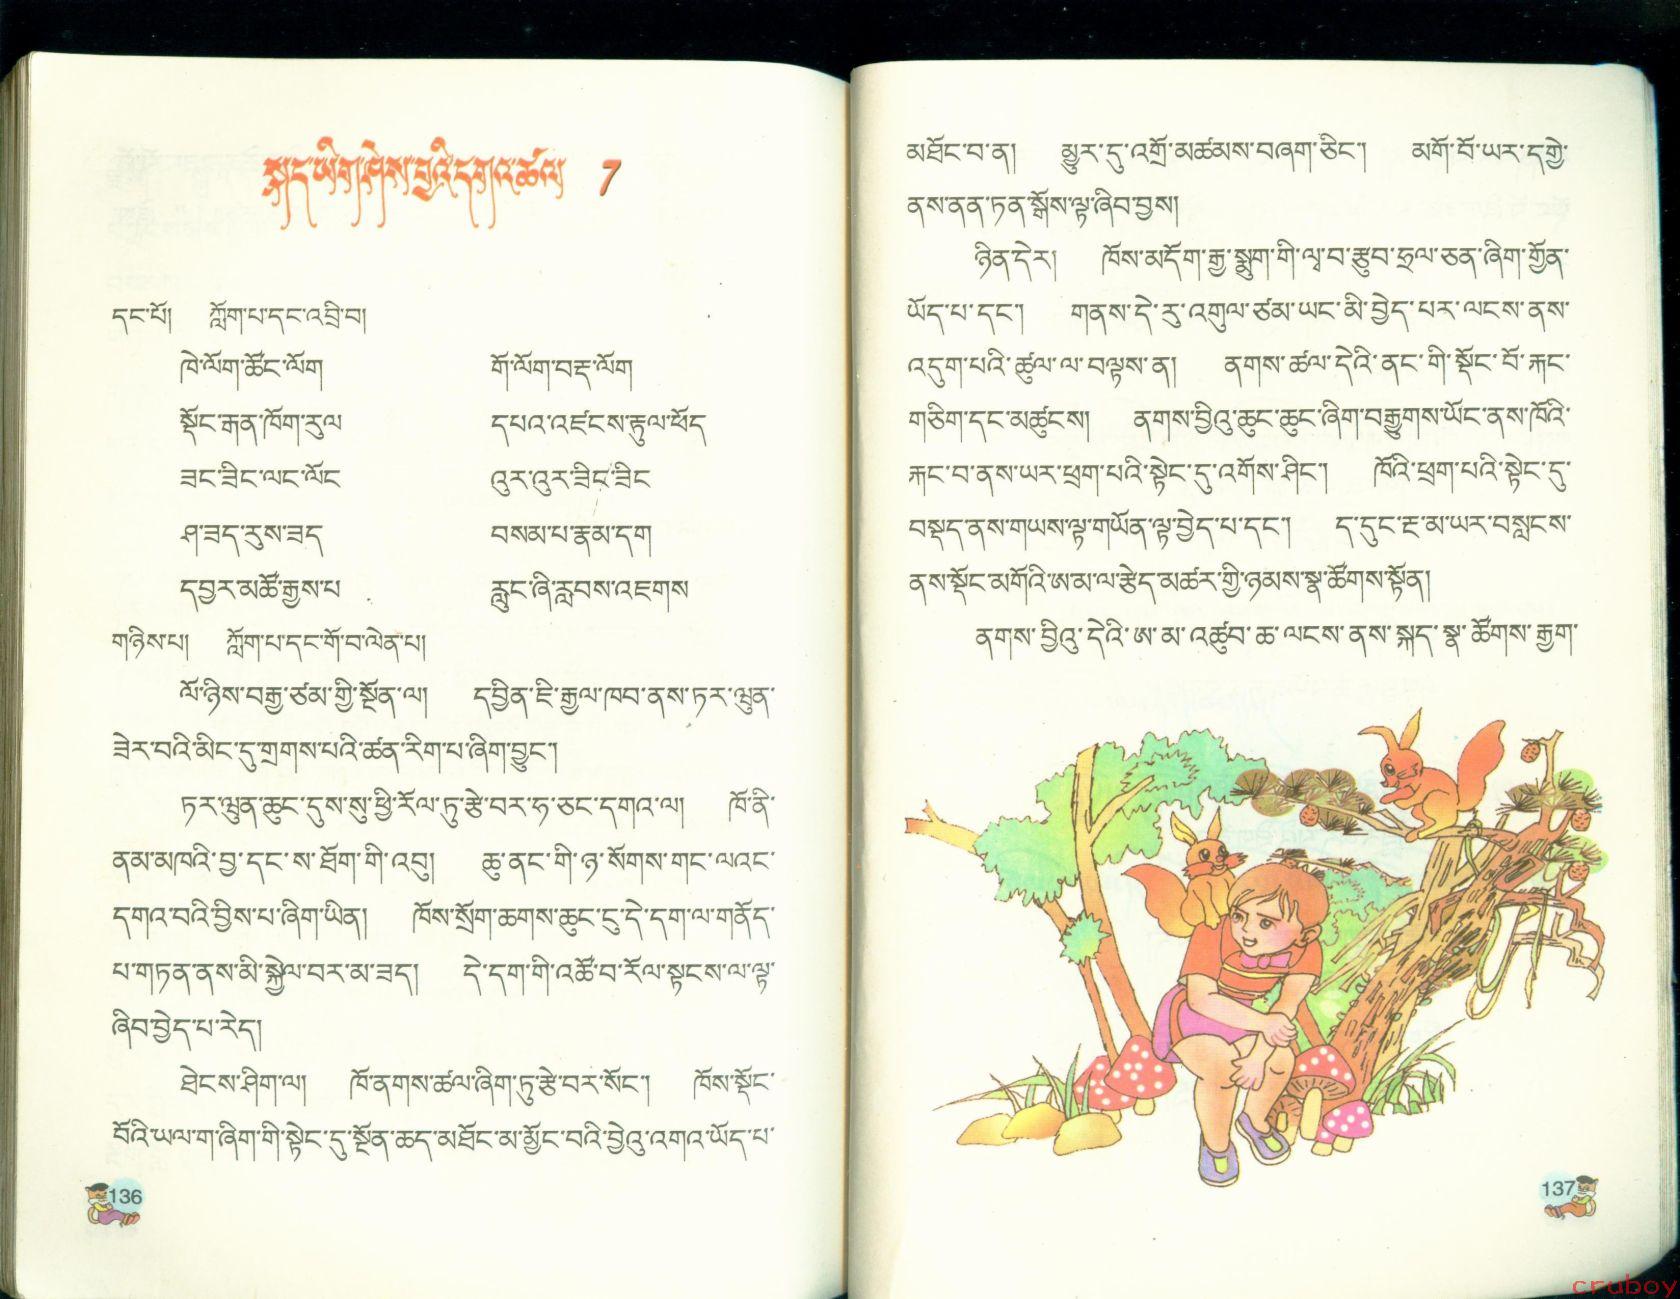 སྐད་ཡིག་ཁེས་བྱའི་དགའ་ཚལ 7
དང་པོ། ཀློག་པ་དང་འབྲི་བ།
ཁེ་ལོག་ཚོང་ལོག གོ་ལོག་བརྡ་ལོག
སྡོང་རྒན་ཁོག་རུལ དཔའ་འཛངས་རྟུལ་ཕོད
ཟང་ཟིང་ལང་ལོང འུར་འུར་ཟིང་ཟིང
ཤ་ཟད་རུས་ཟད བསམ་པ་རྣམ་དག
དབྱར་མཚོ་རྒྱས་པ རླུང་ཞི་རླབས་འཇགས
གཉིས་པ། ཀློག་པ་དང་གོ་བ་ལེན་པ།
ལོ་ཉིས་བརྒྱ་ཙམ་གྱི་སྔོན་ལ། དབྱིན་ཇི་རྒྱལ་ཁབ་ནས་ཏར་ཝུན་
ཟེར་བའི་མིང་དུ་གྲགས་པའི་ཚན་རིག་པ་ཞིག་བྱུང་།
ཏར་ཝུན་ཆུང་དུས་སུ་ཕྱི་རོལ་ཏུ་རྩེ་བར་ཧ་ཅང་དགའ་ལ། ཁོ་ནི་
ནམ་མཁའི་བྱ་དང་ས་ཐོག་གི་འབུ། ཆུ་ནང་གི་ཉ་སོགས་གང་ལའང་
དགའ་བའི་བྱིས་པ་ཞིག་ཡིན། ཁོས་སྲོག་ཆགས་ཆུང་ངུ་དེ་དག་ལ་གནོད་
པ་གཏན་ནས་མི་སྐྱེལ་བར་མ་ཟད། དེ་དག་གི་འཚོ་བ་རོལ་སྟངས་ལ་ལྟ་
ཞིབ་བྱེད་པ་རེད།
ཐེངས་ཤིག་ལ། ཁོ་ནགས་ཚལ་ཞིག་ཏུ་རྩེ་བར་སོང་། ཁོས་སྡོང་
བོའི་ཡལ་ག་ཞིག་གི་སྟེང་དུ་སྔོན་ཆད་མཐོང་མ་མྱོང་བའི་བྱེའུ་འགའ་ཡོད་པ་
136
མཐོང་བ་ན། མྱུར་དུ་འགྲོ་མཚམས་བཞག་ཅིང་། མགོ་བོ་ཡར་དགྱེ་
ནས་ནན་ཏན་སྒོས་ལྟ་ཞིབ་བྱས།
ཉིན་དེར། ཁོས་མདོག་རྒྱ་སྨུག་གི་ལྭ་བ་རྩུབ་ཧྲལ་ཅན་ཞིག་གྱོན་
ཡོད་པ་དང་། གནས་དེ་རུ་འགུལ་ཙམ་ཡང་མི་བྱེད་པར་ལངས་ནས་
འདུག་པའི་ཚུལ་ལ་བལྟས་ན། ནགས་ཚལ་དེའི་ནང་གི་སྡོང་བོ་རྐང་
གཅིག་དང་མཚུངས། ནགས་བྱིའུ་ཆུང་ཆུང་ཞིག་བརྒྱུགས་ཡོང་ནས་ཁོའི་
རྐང་བ་ནས་ཡར་ཕྲག་པའི་སྟེང་དུ་འགོས་ཤིང་། ཁོའི་ཕྲག་པའི་སྟེང་དུ་
བསྡད་ནས་གཡས་ལྟ་གཡོན་ལྟ་བྱེད་པ་དང་། ད་དུང་རྔ་མ་ཡར་བསླངས་
ནས་སྡོང་མགོའི་ཨ་མ་ལ་རྩེད་མཚར་གྱི་ཉམས་སྣ་ཚོགས་སྟོན།
ནགས་བྱིའུ་དེའི་ཨ་མ་འཚུབ་ཆ་ལངས་ནས་སྐད་སྣ་ཚོགས་རྒྱག་
137
cruboy